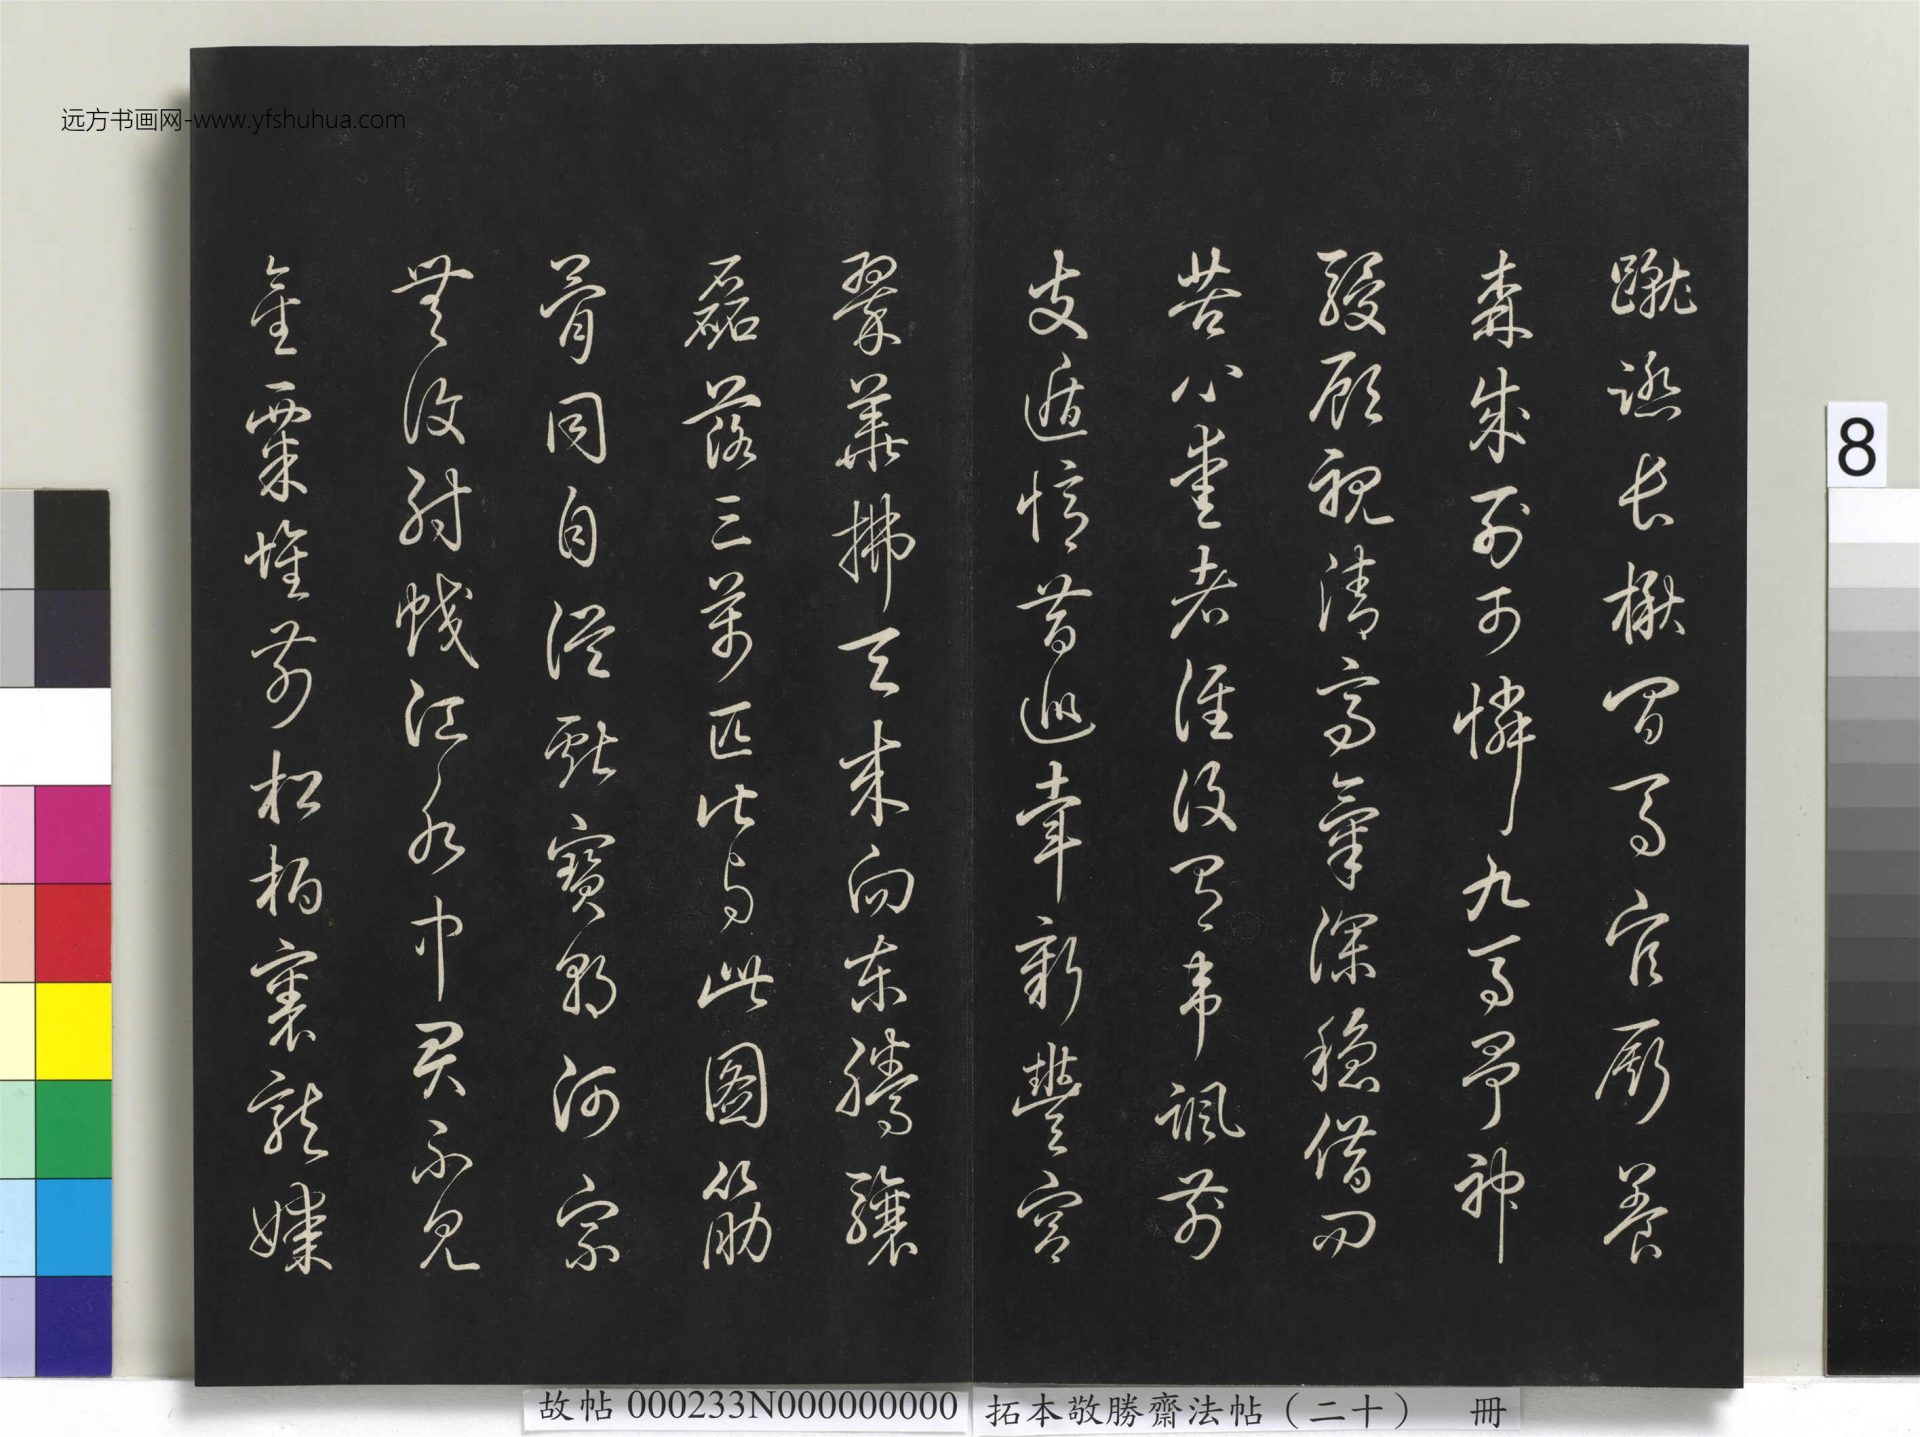 远方书画网-www.yfshuhua.com
蹴踏長楸間馬官廝養
森成列可憐九馬爭神
駿顧視清高氣深穩借問
苦心愛者誰後有韋諷前
支遁憶昔巡幸新豐宮
翠華拂天來向東騰驤
磊落三萬匹皆與此圖筋
骨同自從獻寶朝河宗
無復射蛟江水中君不見
金粟堆前松柏裏龍媒
8
故帖 000233N000000000 拓本敬勝齋法帖（二十） 冊